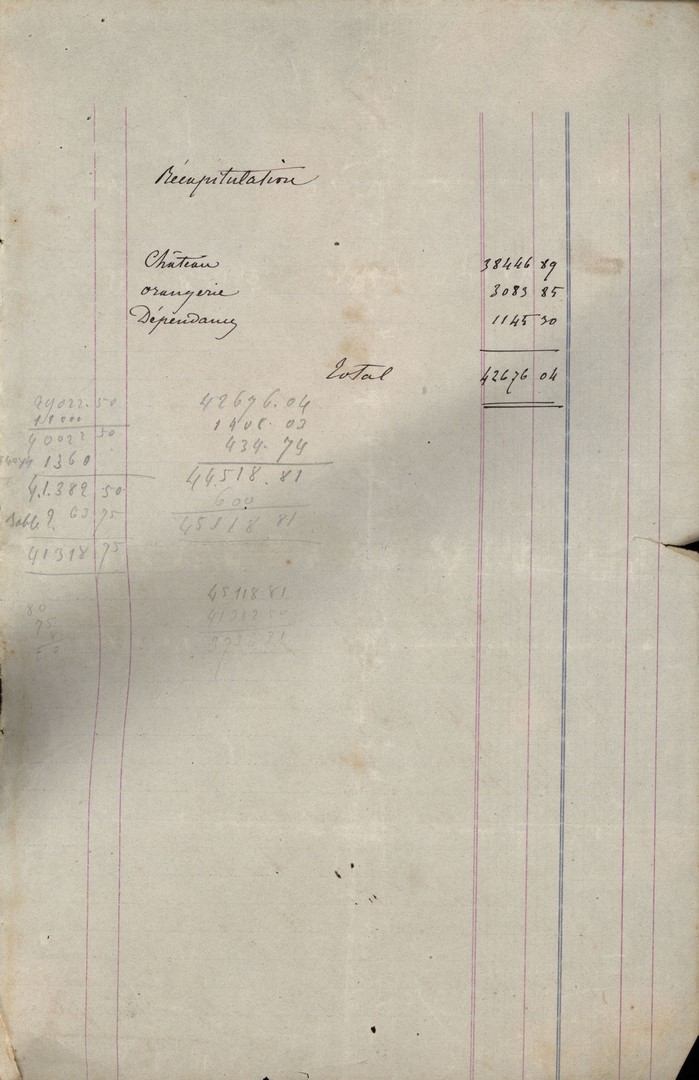 Récapitulation
Château 38446 89
orangerie 3083 85
Dépendances 1145 30
Total 42676 04
29022. 50
11000
40022 50
1360
41.382 50
63 75
41318 75
42676. 04
1408. 03
434. 74
44518. 81
600
45118 81
45118 81
80
75